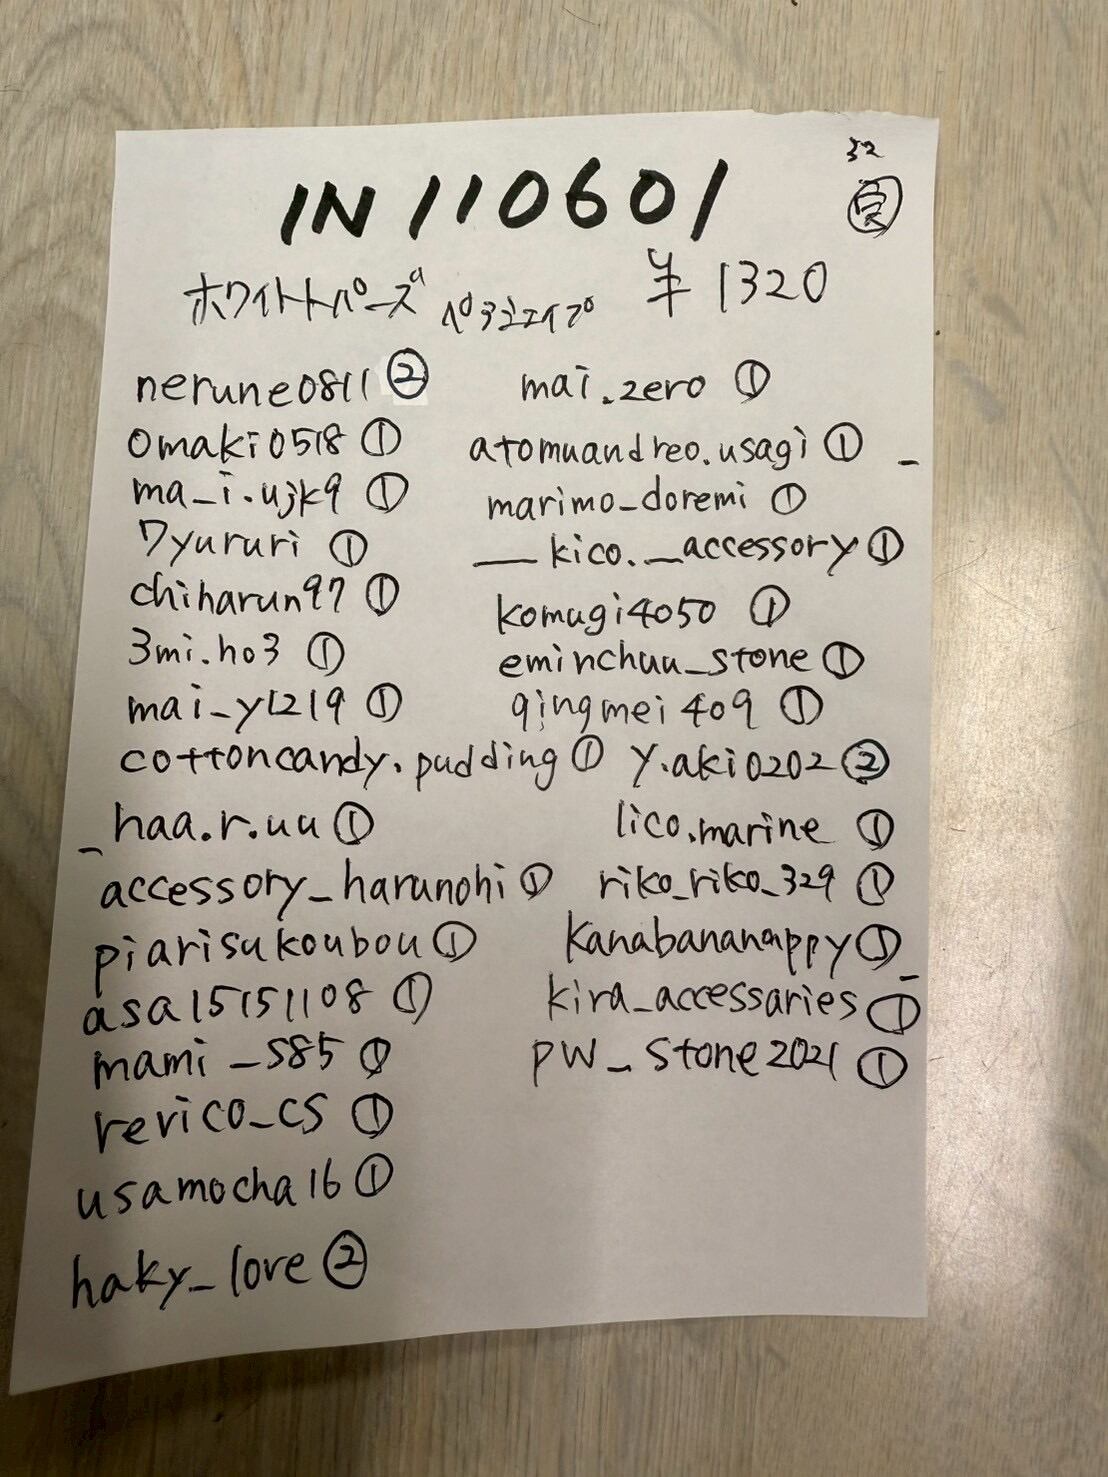 32
IN110601
ホワイトトパーズ ペアシェイプ ¥1320
nerune0811 ②
omaki0518 ①
ma_i.ujk9 ①
7yururi ①
chiharun97 ①
3mi.ho3 ①
mai_y1219 ①
cottoncandy.pudding ①
_haa.r.uu ①
accessory_harunohi ①
piarisukoubou ①
asa15151108 ①
mami_s85 ①
rerico_cs ①
usamocha16 ①
haky_love ②
mai.zero ①
atomuandreo.usagi ① _
marimo_doremi ①
__kico._accessory ①
komugi4050 ①
eminchuu_stone ①
qingmei409 ①
y.aki0202 ②
lico.marine ①
riko_riko_329 ①
kanabananappy ①
kira_accessaries_ ①
pw_stone2021 ①